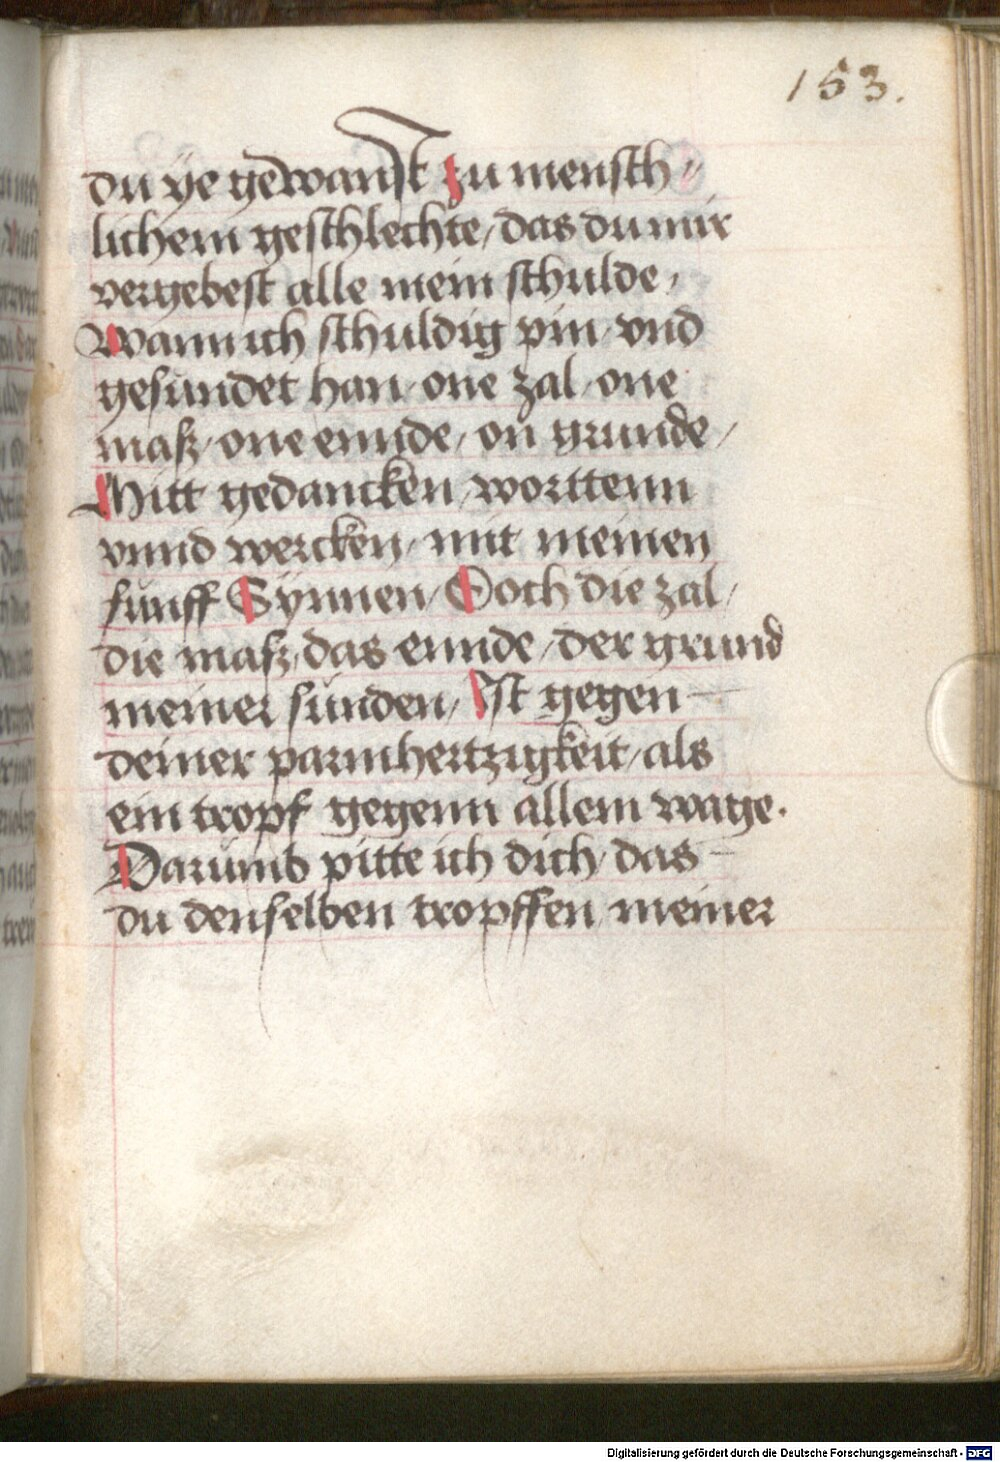 153.
du ye gewanst zu mensch⸗
lichem geschlechte / das du mir
vergebest alle mein schulde /
Wann ich schuldig pin / vnd
gesundet han / one zal / one
maß / one ennde / on grunde /
Mitt gedancken / worttenn
vnnd wercken / mit meinen
funff Synnen / Doch die zal /
die maß / das ennde / der grund
meiner sunden / Ist gegen
deiner parmhertzigkeit / als
ein tropf gegenn allem wage.
Darumb pitte ich dich / das
du denselben tropffen meiner
Digitalisierung gefördert durch die Deutsche Forschungsgemeinschaft - DFG